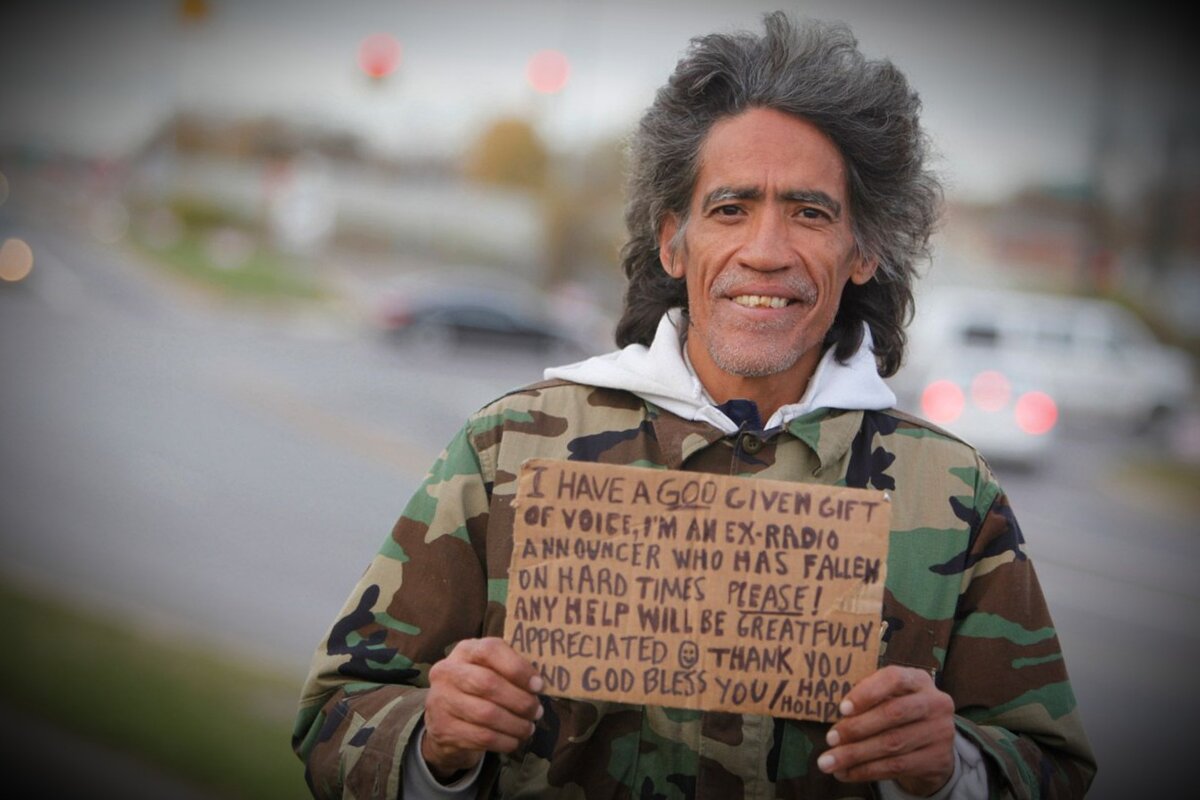 I HAVE A GOD GIVEN GIFT
OF VOICE, I'M AN EX-RADIO
ANNOUNCER WHO HAS FALLEN
ON HARD TIMES PLEASE!
ANY HELP WILL BE GREATFULLY
APPRECIATED THANK YOU
AND GOD BLESS YOU/HAPP
HOLID